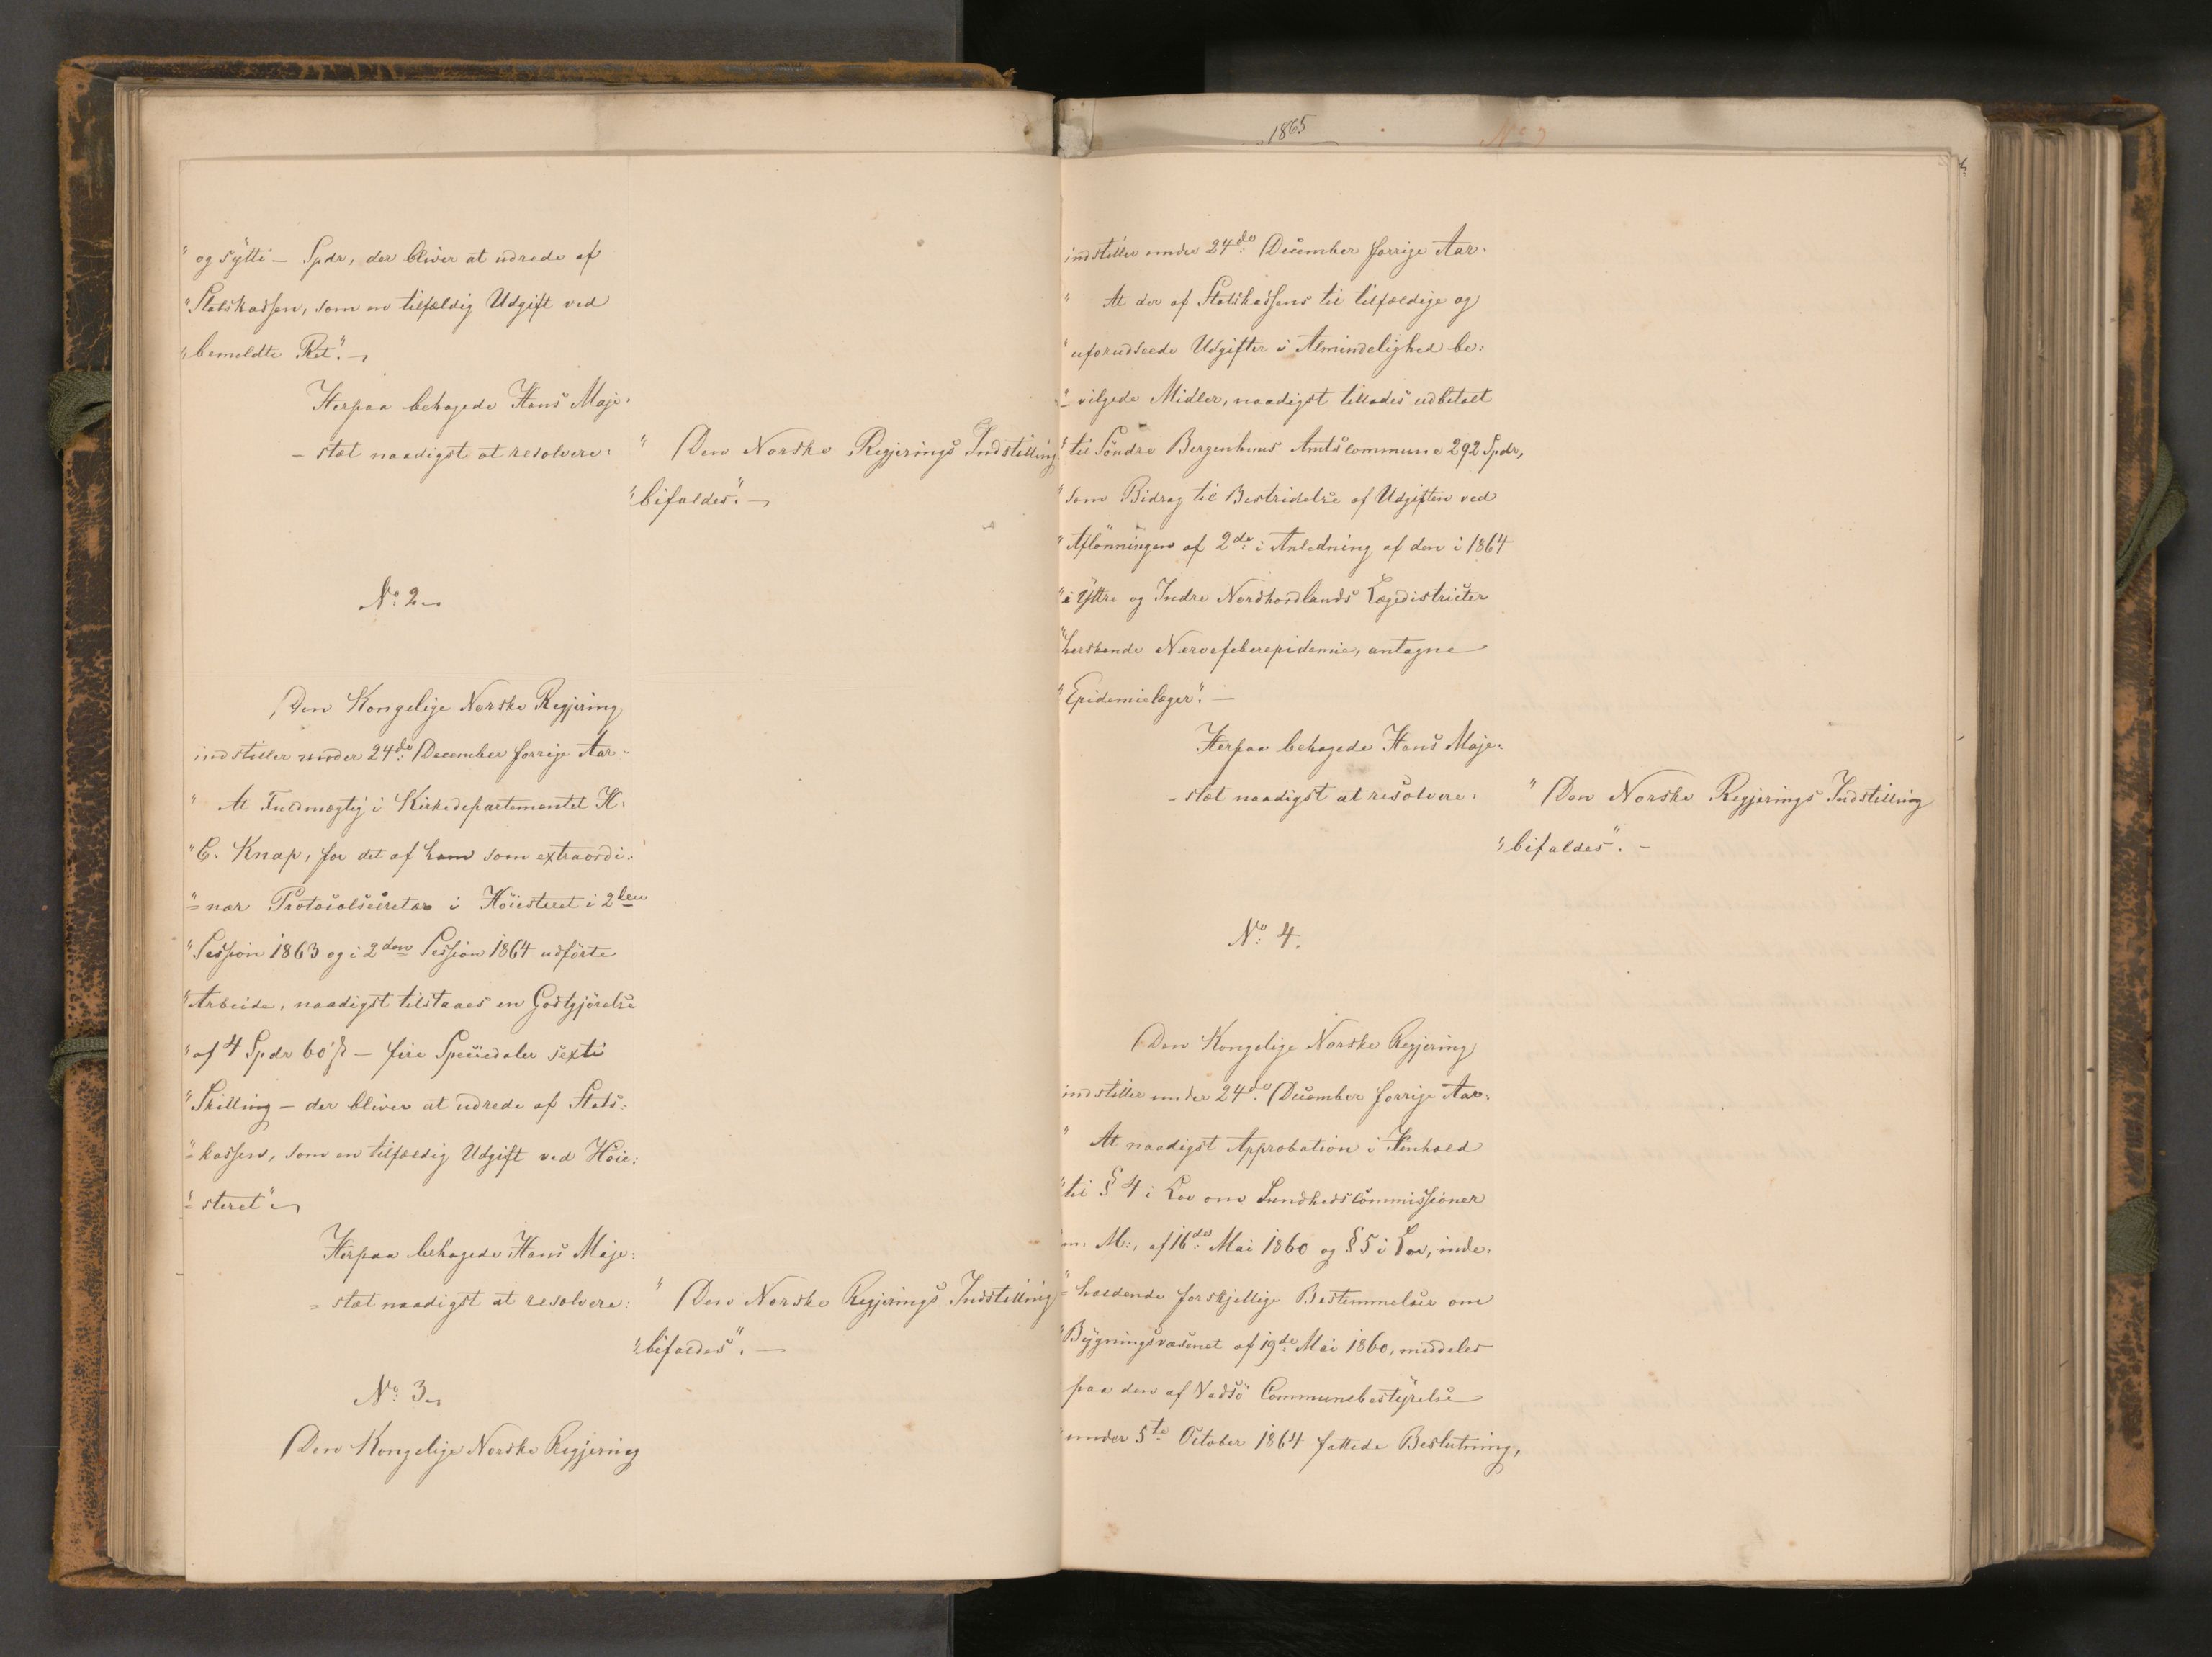 " og sytti — Spdr, der bliver at udrede af
"Statskassen, som en tilfældig Udgift ved
"bemeldte Ret". —
Herpaa behagede Hans Maje-
- stæt naadigst at resolvere:
" Den Norske Regjerings Indstilling
"bifaldes". —
No: 2.
Den Kongelige Norske Regjering
indstiller under 24de: December forrige Aar:
" At Fuldmægtig i Kirkedepartementet H.
"C. Knap, for det af ham som extraordi:
"= nær Protocolsecretær i Høiesteret i 2den
"Session 1863 og i 2den Session 1864 udførte
"Arbeide, naadigst tilstaaes en Godtgjørelse
"af 4 Spdr 60 ß — fire Speciedaler sexti
"Skilling — der bliver at udrede af Stats:
"= kassen, som en tilfældig Udgift ved Høie:
"= steret".
Herpaa behagede Hans Maje:
= stæt naadigst at resolvere:
" Den Norske Regjerings Indstilling
"bifaldes". —
No: 3.
Den Kongelige Norske Regjering
1865
indstiller under 24de: December forrige Aar:
" At der af Statskassens til tilfældige og
"uforudseede Udgifter i Almindelighed be:
"= vilgede Midler, naadigst tillades udbetalt
"til Søndre Bergenhuus Amtscommune 292 Spdr,
"som Bidrag til Bestridelse af Udgiften ved
"Aflønningen af 2de: i Anledning af den i 1864
"i Yttre og Indre Nordhordlands Lægedistricter
"herskende Nervefeberepidemie, antagne
"Epidemielæger". —
Herpaa behagede Hans Maje:
- stæt naadigst at resolvere:
" Den Norske Regjerings Indstilling
"bifaldes". —
No: 4.
Den Kongelige Norske Regjering
indstiller under 24de: December forrige Aar:
" At naadigst Approbation i Henhold
"til § 4 i Lov om Sundhedscommissioner
"m. M:, af 16de: Mai 1860 og § 5 i Lov, inde:
"= holdende forskjellige Bestemmelser om
"Bygningsvæsenet af 19de: Mai 1860, meddeles
paa den af Vadsø Communebestyrelse
"under 5te October 1864 fattede Beslutning,